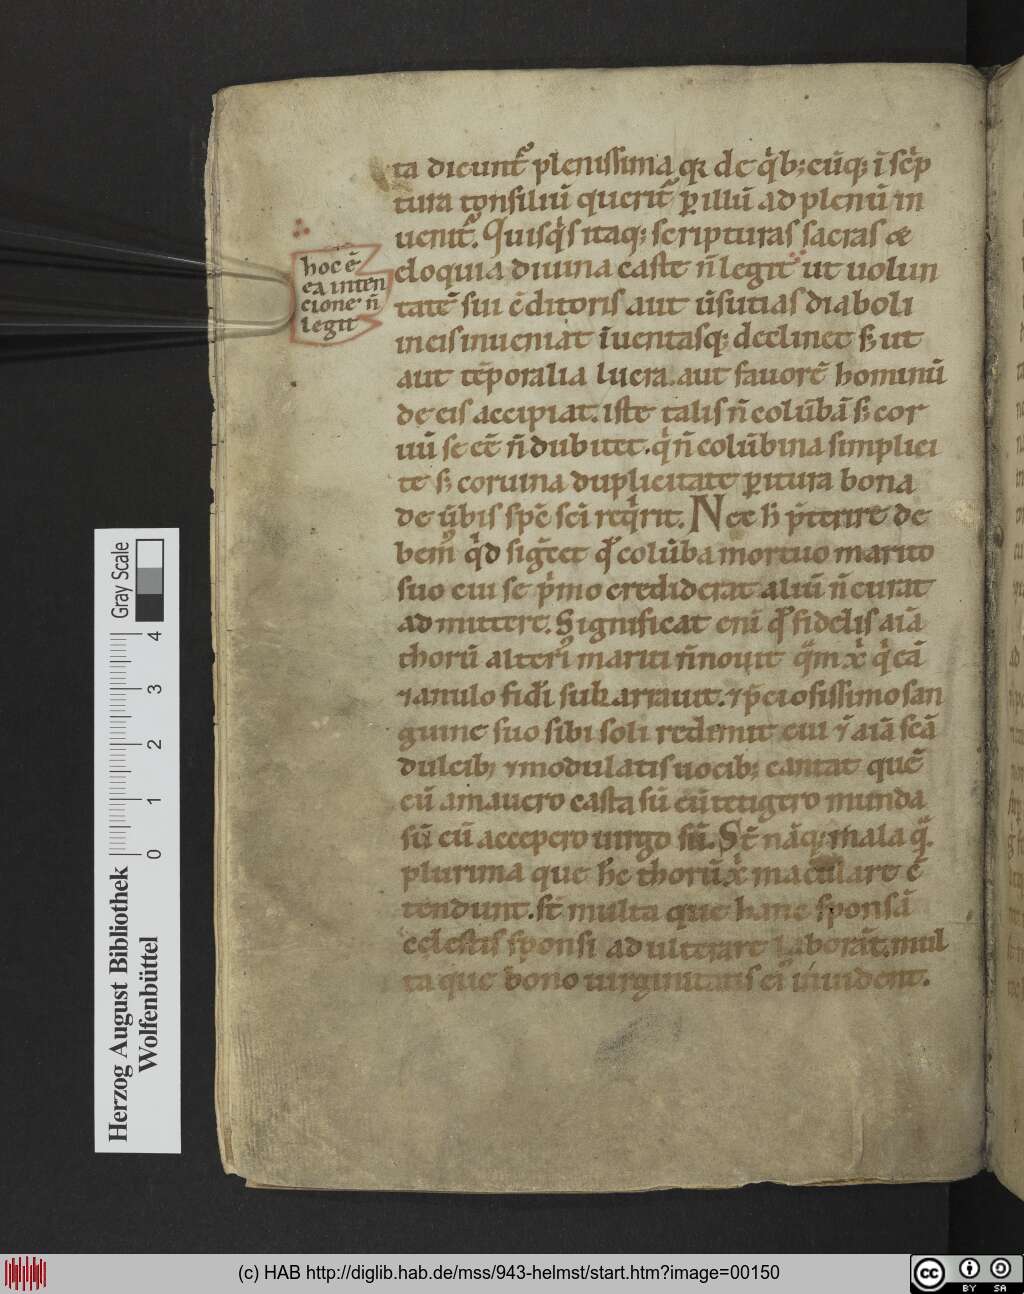 ta dicunt᷑ plenissima qꝛ de qͥbꝫ cūqꝫ ī sc̄p
tura consiliū querit᷑ ꝑ illū ad plenū in
uenit᷑. Quisqͥs itaqꝫ scripturas sacras &
eloquia diuina caste n̄ legit ut uolun
tatē sui c̄ditoris aut ūsutias diaboli
in eis inueniat īuentasqꝫ declinet sꝫ ut
aut tēporalia lucra. aut fauorē hominū
de eis accipiat. iste talis n̄ colūbā sꝫ cor
uū se eē n̄ dubitet. qͥ n̄ colūbina simplici
te sꝫ coruina duplicitate ꝑitura bona
de ūbis spē sc̄i reqͥrit. Nec h̄ p̄terire de
bem᷒ qͥd siḡcet qd̄ colūba mortuo marito
suo cui se pͥmo crediderat aliū n̄ curat
admittere. Significat eni qd̄ fidelis aīa
thorū alteri᷒ mariti n̄ nouit qm̄ xp̄ qͥ eā
⁊ anulo fidei sub arrauit. ⁊ p̄ciosissimo san
guine suo sibi soli redemit cui ⁊ aīa scā
dulcibꝫ ⁊ modulatis uocibꝫ cantat quē
cū amauero casta sū cū tetigero munda
sū cū accepero uirgo sū. St̄ nāqꝫ mala
plurima que hc̄ thorū xp̄i maculare c̄
tendunt. st̄ multa que hanc sponsā
celestis sponsi adulterare laborāt. mul
ta que bono uirginitatis ei inuident.
hoc ē
ea inten
cione n̄
legit
Gray Scale
0 1 2 3 4
Herzog August Bibliothek
Wolfenbüttel
(c) HAB http://diglib.hab.de/mss/943-helmst/start.htm?image=00150
cc BY SA